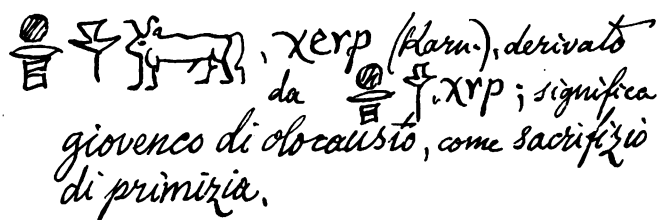 𓐍𓂋𓊪𓃒, χerp (Karn.), derivato
da 𓐍𓂋𓊪, χrp; significa
giovenco di olocausto, come sacrifizio
di primizia.